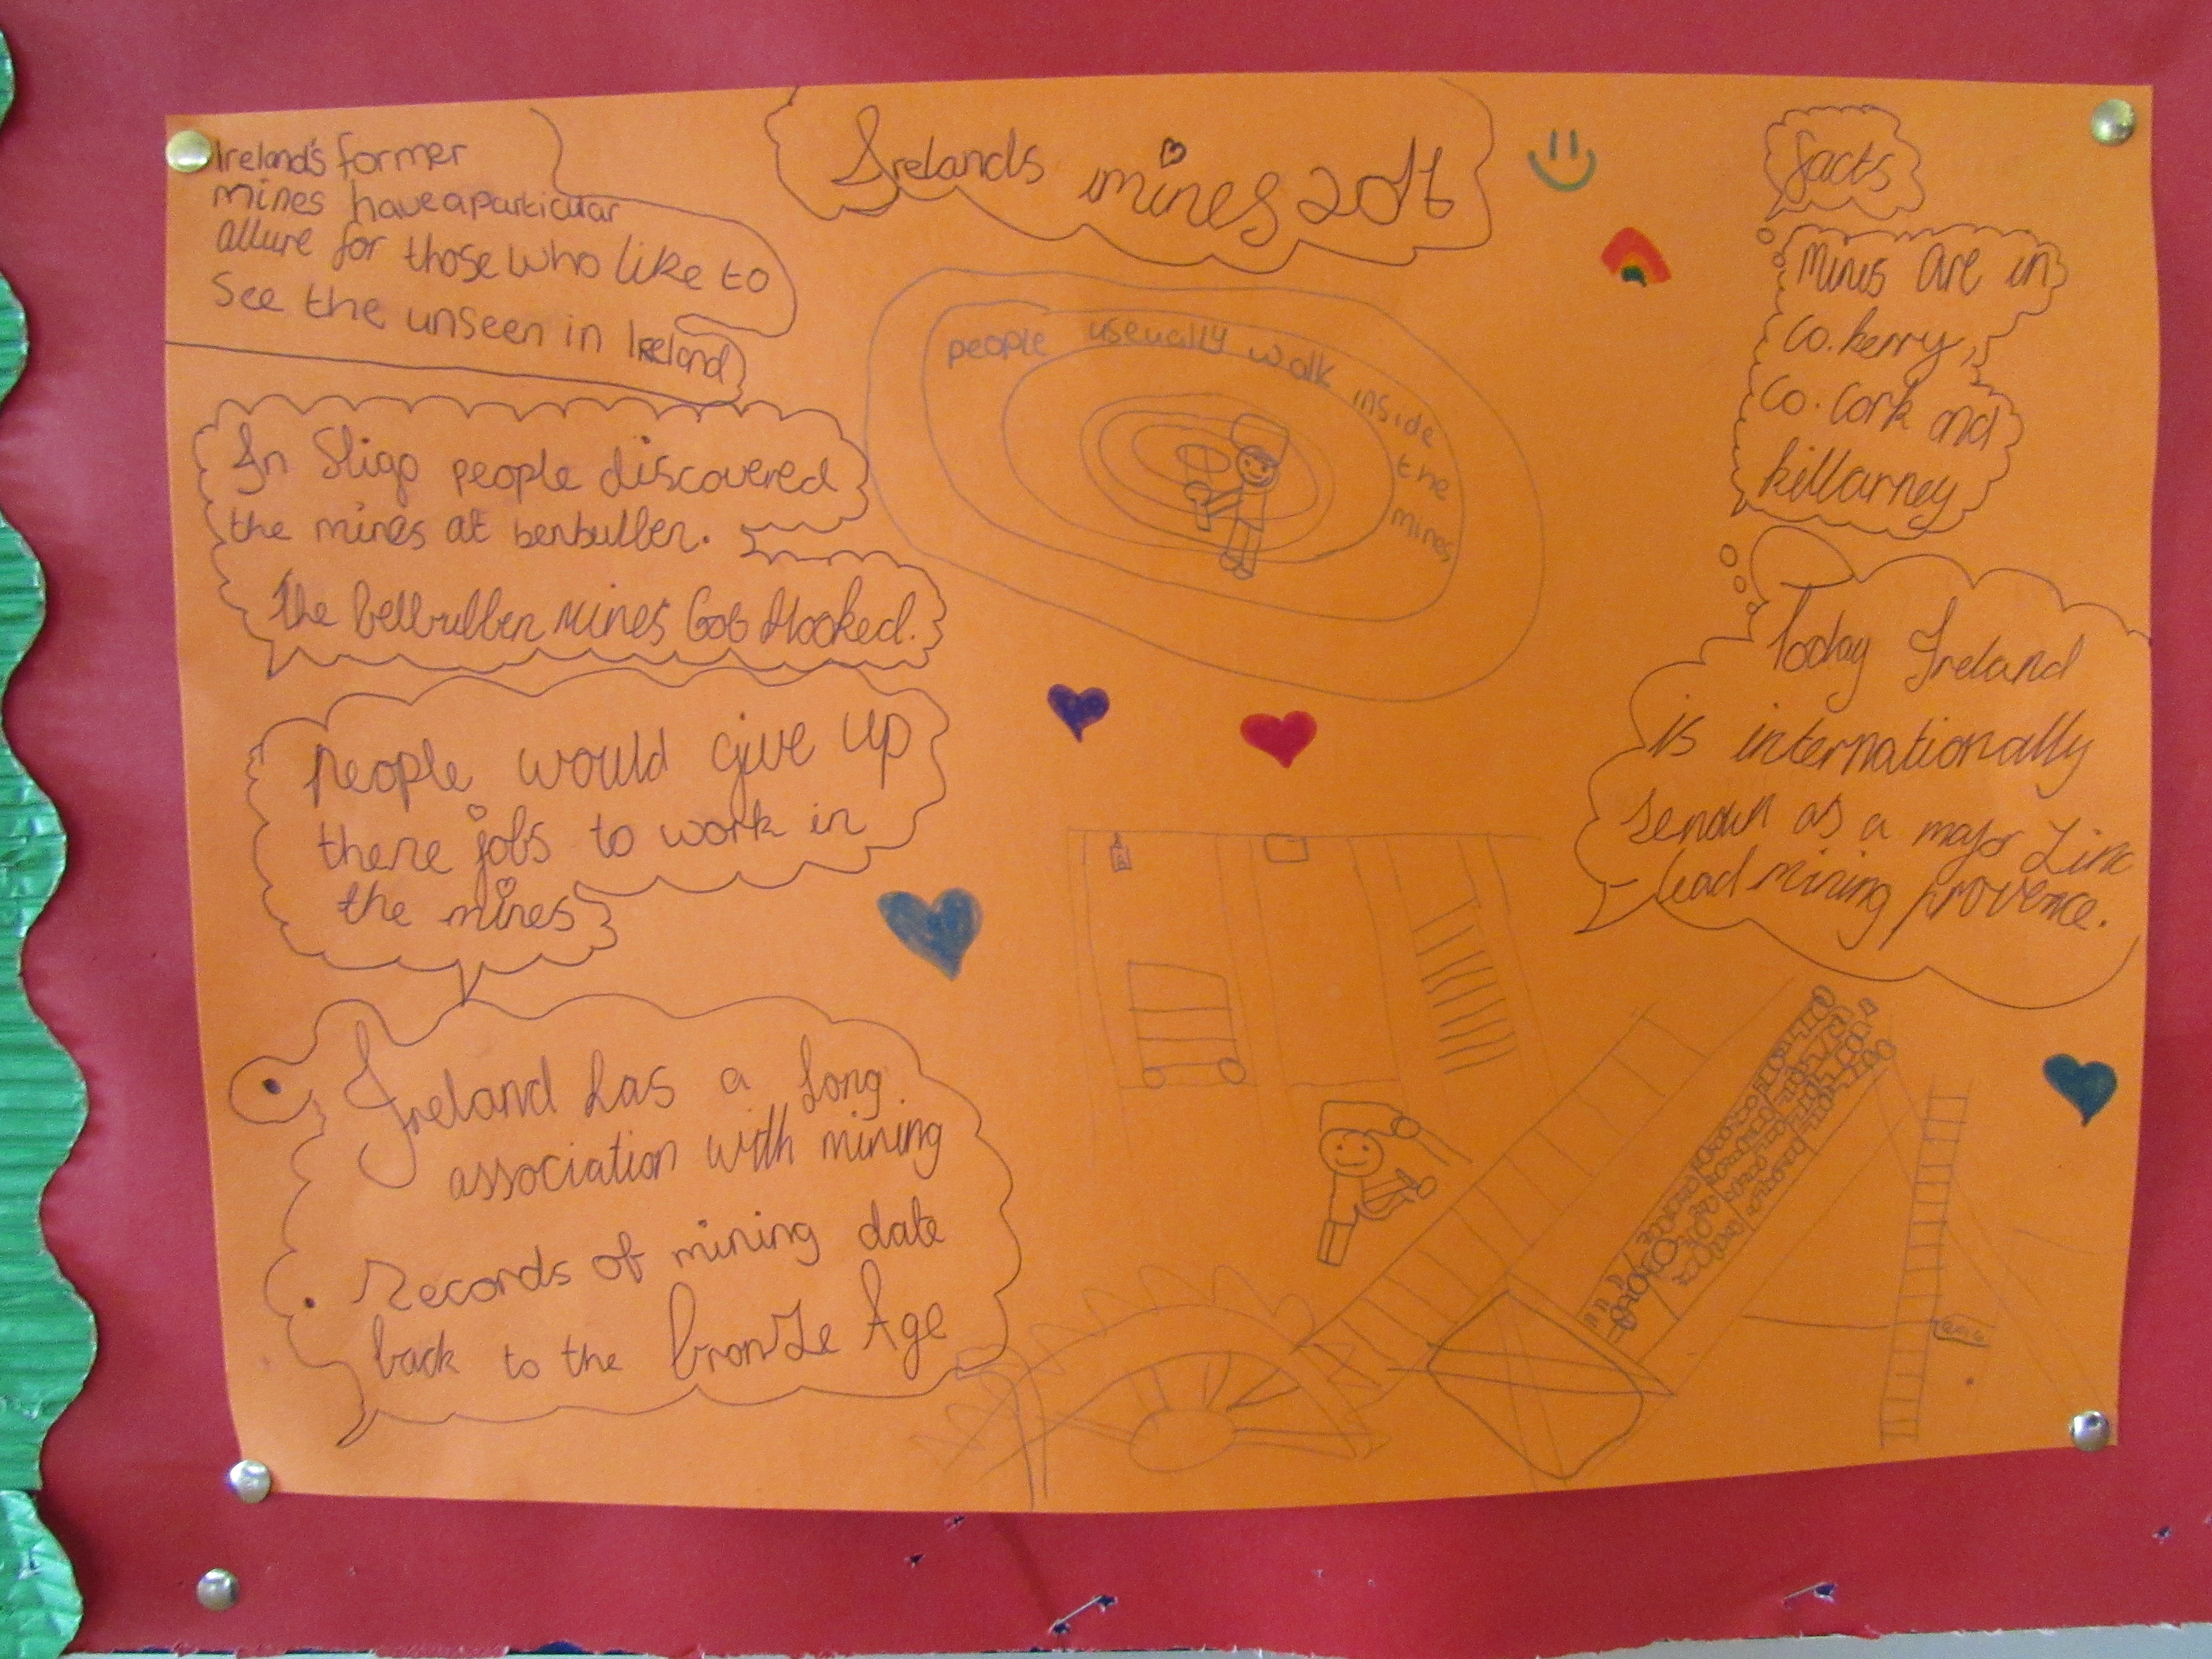 Irelands mines 2016
Ireland's former
mines have a particular
allure for those who like to
see the unseen in Ireland
In Sligo people discovered
the mines at benbulben.
The bellbulben mines Got
people would give up
there jobs to work in
the mines
Ireland has a long
association with mining
Records of mining date
back to the bronze Age
people useually walk inside the mines
facts
Mines are in
co.kerry,
co.cork and
killarney
Today Ireland
is internationally
as a major Zinc
lead mining provence.